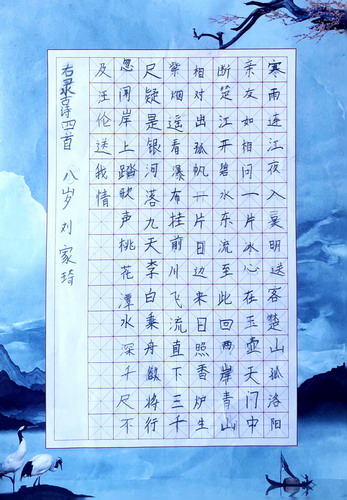 寒雨连江夜入明送客楚山孤洛阳
亲友如相问一片冰心在玉壶天门中
断楚江开碧水东流至此回两岸青山
相对出孤帆一片日边来日照香炉生
紫烟遥看瀑布挂前川飞流直下三千
尺疑是银河落九天李白乘舟欲将行
忽闻岸上踏歌声桃花潭水深千尺不
及汪伦送我情
右录古诗四首 八岁 刘家琦